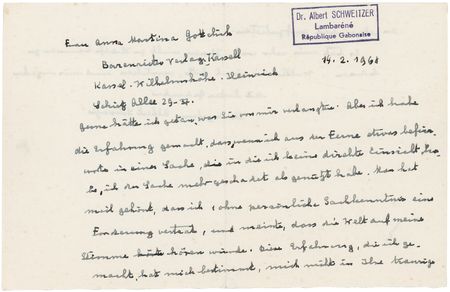 Dr. Albert SCHWEITZER
Lambaréné
République Gabonaise
14.2.1961
Frau Anna Martina Gottschick
Bärenreiter Verlag Kassel
Kassel-Wilhelmshöhe. Heinrich
Schütz Allee 29-37.
Gerne hätte ich getan, was Sie von mir verlangten. Aber ich habe
die Erfahrung gemacht, dass, wenn ich aus der Ferne etwas befür-
worte in einer Sache, die in die ich keine direkte Einsicht ha-
be, ich der Sache mehr geschadet als genützt habe. Man hat
mir gesagt, dass ich, ohne persönliche Sachkenntnis eine
Forderung vertrat, und meinte, dass die Welt auf meine
Stimme hören würde. Diese Erfahrung, die ich ge-
macht, hat mich bestimmt, mich nicht in Ihre traurige